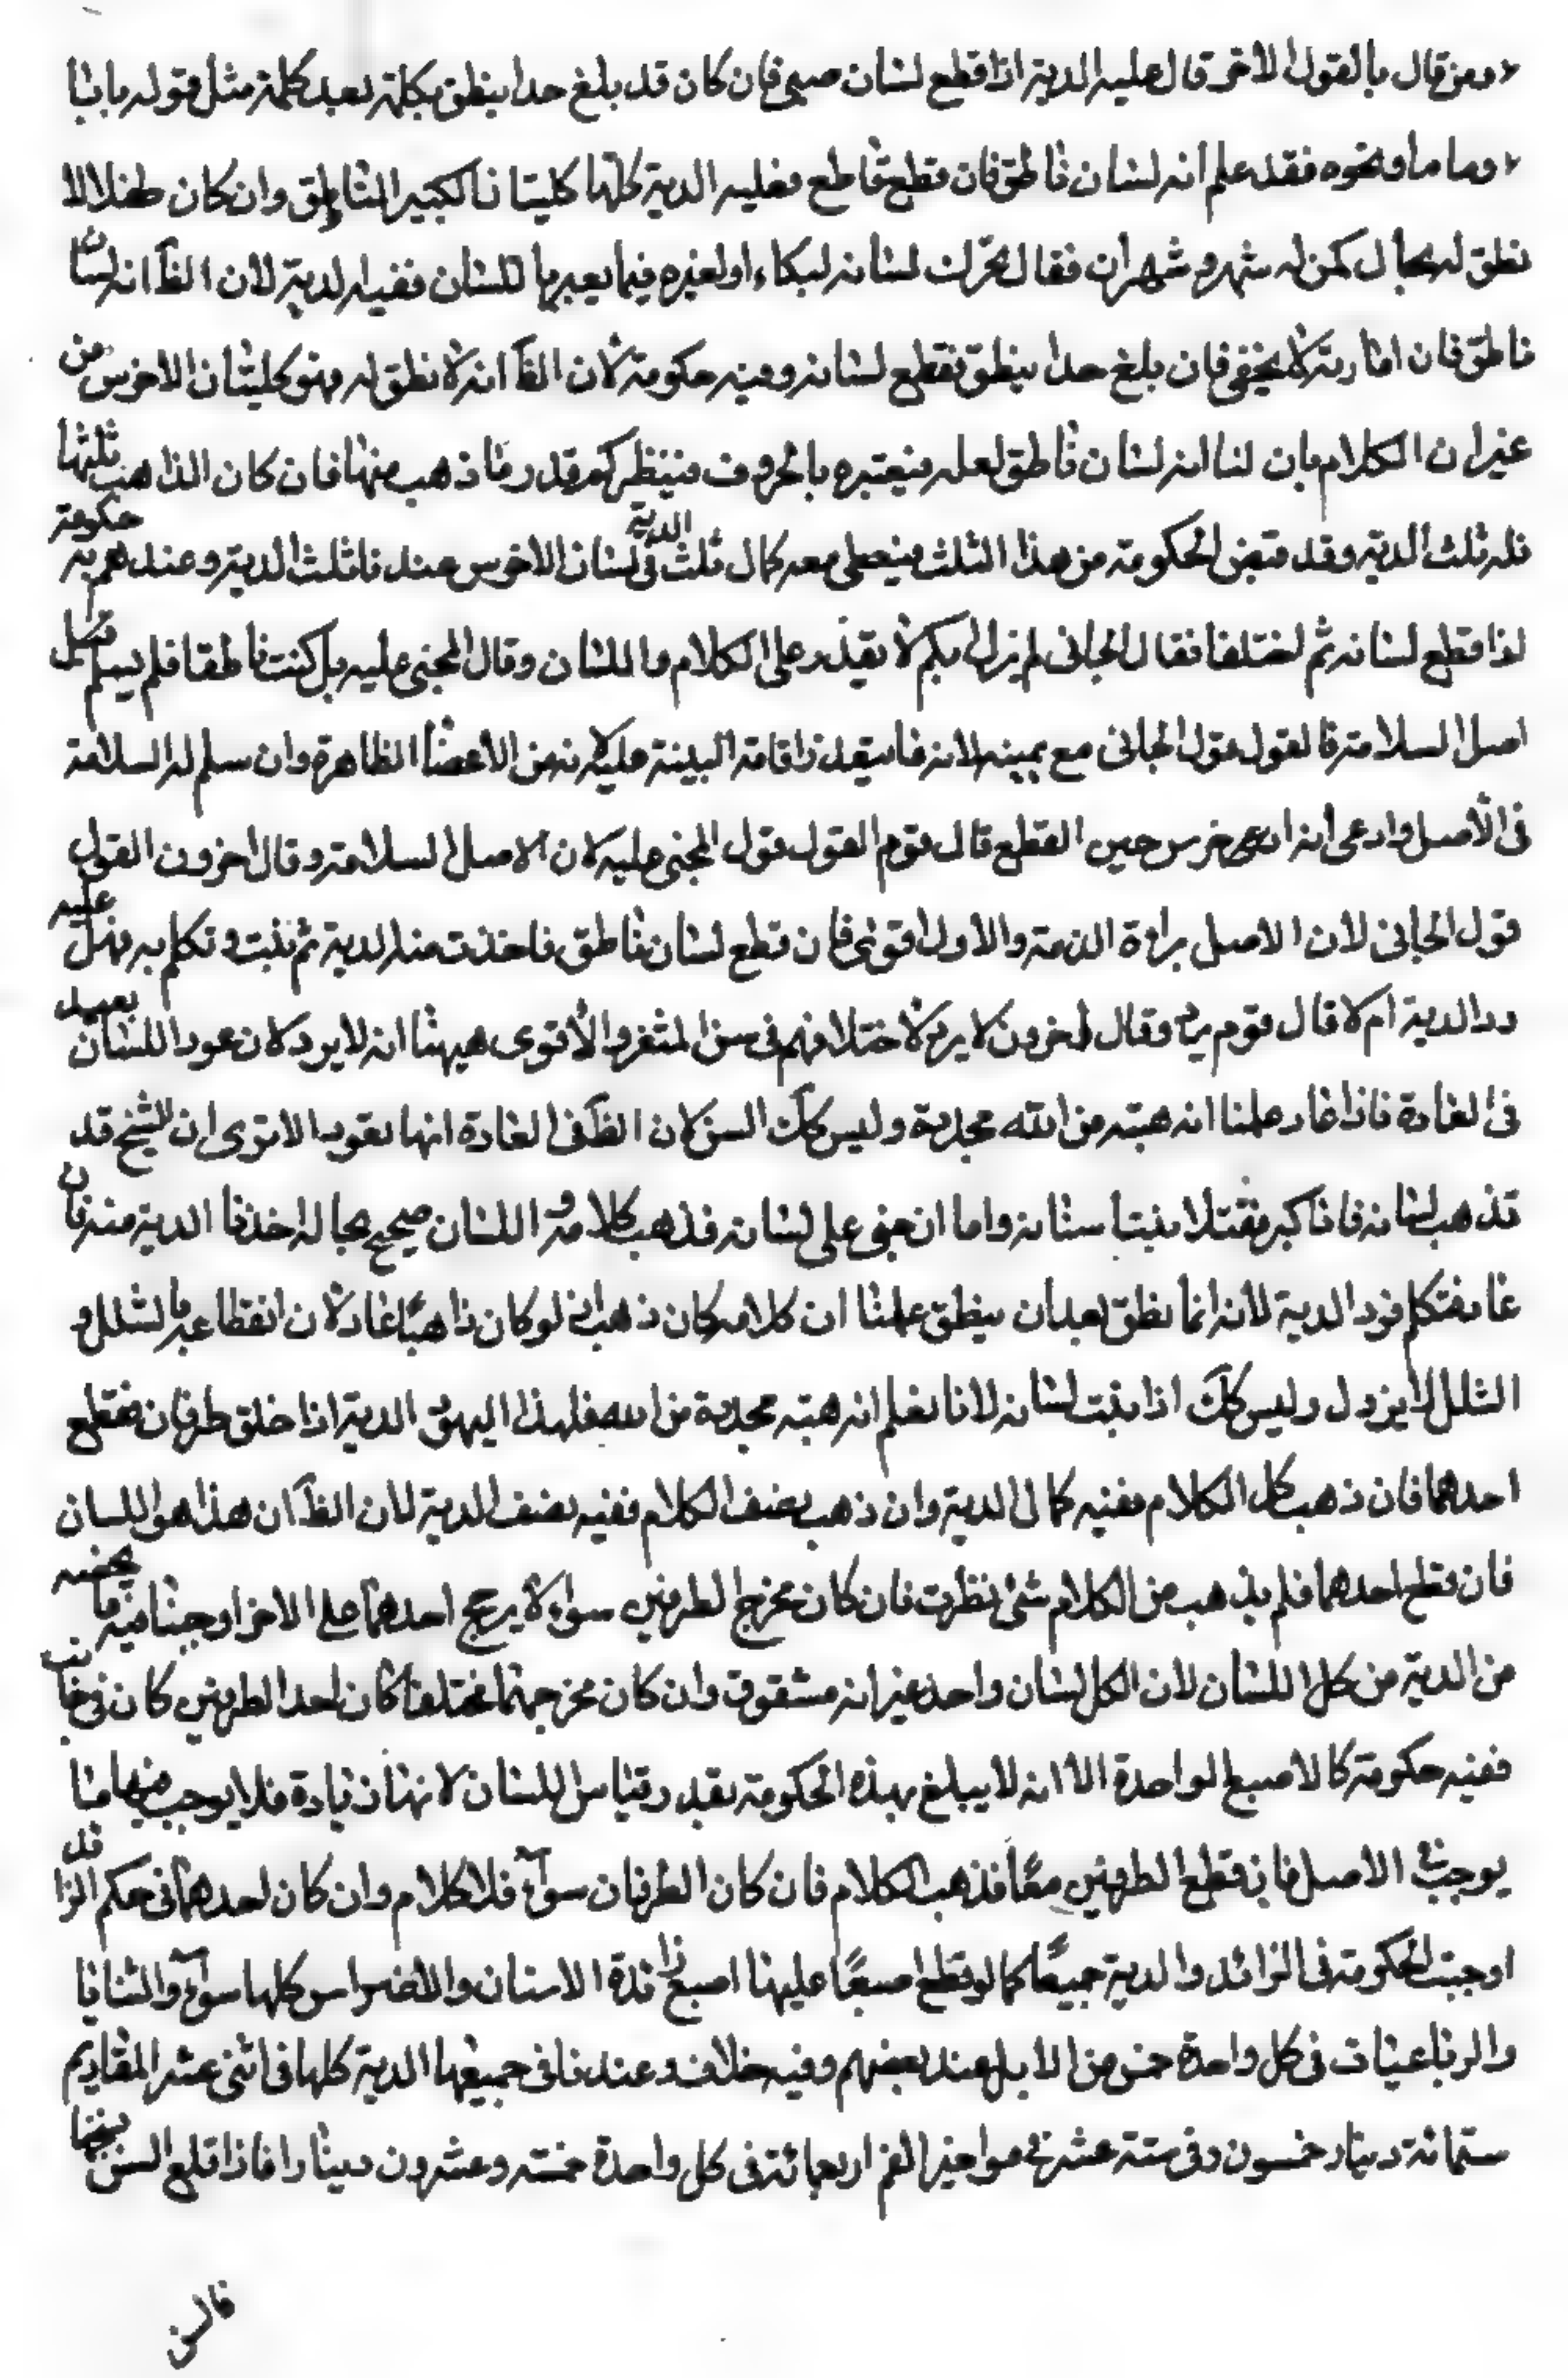 ومن قال بالقول الاخر قال عليه الدية اذا قطع لسان صبي فان كان قد بلغ حدا ينطق بكلمة بعد كلمة مثل قوله بابا
وماما ونحوه فقد علم انه لسان ناطق فان قطع قاطع فعليه الدية كلها كلسان الكبير الناطق وان كان طفلا لا
نطق له بحال كمن له شهر و شهران فقال يحرك لسانه لبكاء او لغيره فيما يعبر بها للسان ففيه الدية لان الظ انه لسان
ناطق فان امارته لا يخفي فان بلغ حدا ينطق فقطع لسانه وفيه حكومة لان الظ انه لا نطق له وهو كلسان الاخرس من
غير ان الكلام بان لنا انه لسان ناطق لعله فيعتبره بالحروف فينظر كم قدر ما ذهب منها فان كان الذاهب ثلثها
فله ثلث الدية وقد قبض الحكومة من هذا الثلث فيعطى معه كمال ثلث الدية في لسان الاخرس عندنا ثلث الدية وعندهم به حكومة
اذا قطع لسانه ثم اختلفا فقال الجاني لم يزل بكم لا يقدر على الكلام واللسان وقال المجني عليه بل كنت ناطقا فلم يسلم
اصل السلامة فالقول قول الجاني مع يمينه لانه فا يتعذر اقامة البينة عليه لانه من الاعضا الظاهرة وان سلم له السلامة
فى الأصل وادعى انه اخرس حين القطع قال قوم القول قول المجني عليه لان الاصل السلامة وقال اخرون القول
قول الجاني لان الاصل براءة الذمة والاول اقوى فان قطع لسان ناطق فاخذت منه الدية ثم نبت وتكلم به فهل عليه
رد الدية ام لا قال قوم يرد وقال اخرون لا يرد لاختلافهم فى سن المثغر والأقوى هيهنا انه لا يرد لان عود اللسان بعيد
فى العادة فاذا عاد علمنا انه هبة من الله مجددة وليس كك السن لان الظ فى العادة انها تعود الا ترى ان الشيخ قد
قد ذهب اسنانه فاذا كبر نبتا سنانه واما ان جنى على لسانه فذهب كلامه و اللسان صحيح بحاله اخذنا الدية منه فان
عاد فتكلم فرد الدية لأنه انما نطق بعد ان ينطق علمنا ان كلامه كان ذهب لو كان ذاهبا عاد لان انقطاعه بالشلل و
الشلل لا يزول وليس كك اذا نبت لسانه لانا نعلم انه هبة مجددة من الله فلهذا الدية اذا خلق طرفان فقطع
احدهما فان ذهب كل الكلام ففيه كمال الدية وان ذهب نصف الكلام ففيه نصف الدية لان الظ ان هذا هو اللسان
فان قطع احدهما فلم يذهب من الكلام شئ نظرت فان كان مخرج الطرفين سواء لا يرجح احدهما على الاخر اوجبنا فيه ما يخصه
من الدية من كل اللسان لان الكل لسان واحد غير انه مشقوق وان كان مخرجهما مختلفا كان احد الطرفين كان فى جانب
ففيه حكومة كالاصبع الواحدة الا انه لا يبلغ بهذه الحكومة بقدر قياس اللسان لانها زيادة فلا يوجب فيها ما
يوجب فى الاصل فان قطع الطرفين معًا فذهب الكلام فان كان الطرفان سواء فلا كلام وان كان احدهما فى حكم الزائد
اوجبت الحكومة فى الزائد والدية جميعًا كما لو قطع اصبعًا عليها اصبع زائدة الاسنان والاضراس كلها سواء والثنايا
والرباعيات فى كل واحدة خمس من الابل عند بعضهم وفيه خلاف وعندنا فى جميعها الدية كلها فى اثنى عشر المقاديم
ستمائة دينار خمسون وفى ستة عشر فى مواخير الفم اربعمائة فى كل واحدة خمسة وعشرون دينارا فاذا قلع السن بسنخها
فالسن